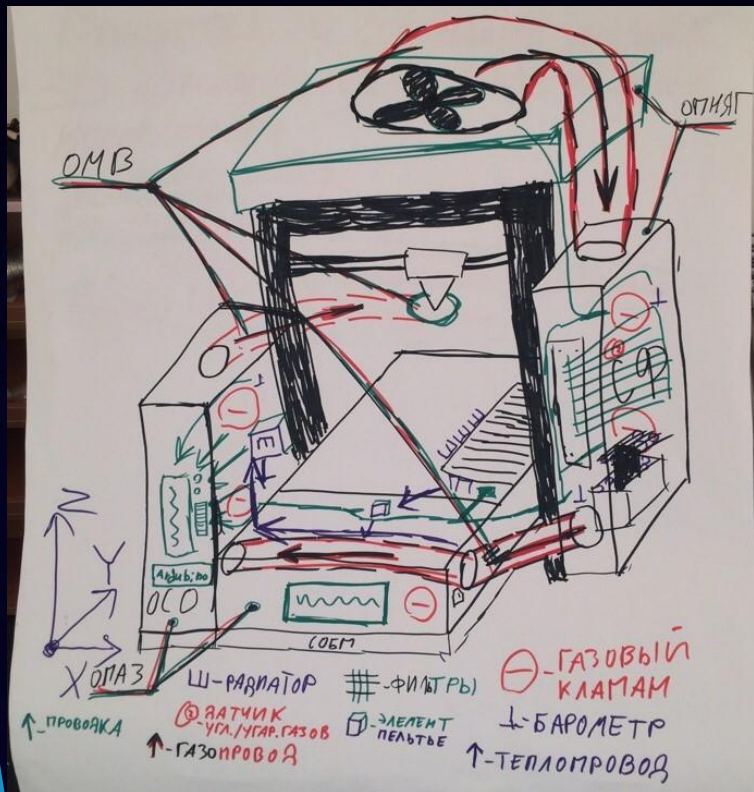 ОМВ
ОМНЯГ
СФ
E
Z
Y
X
Ardubino
ОСО
СОБМ
ОПАЗ
Ш-РАДИАТОР
-ФИЛЬТРЫ
-ГАЗОВЫЙ
КЛАМАМ
↑-ПРОВОЯКА
ЯАТЧИК
УГЛ./УГАР.ГАЗОВ
-ЭЛЕЛЕНТ
ПЕЛЬТЬЕ
⊥-БАРОМЕТР
↑-ГАЗОПРОВОД
↑-ТЕПЛОПРОВОД